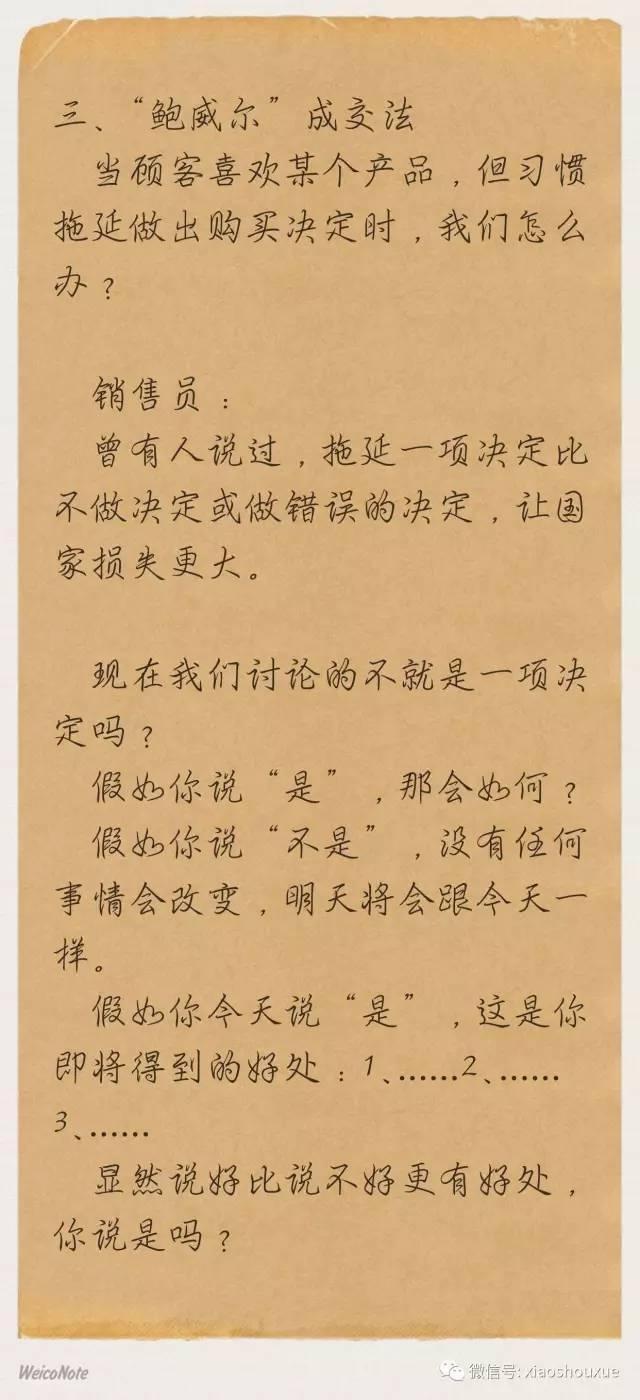 三、“鲍威尔”成交法
当顾客喜欢某个产品，但习惯
拖延做出购买决定时，我们怎么
办？
销售员：
曾有人说过，拖延一项决定比
不做决定或做错误的决定，让国
家损失更大。
现在我们讨论的不就是一项决
定吗？
假如你说“是”，那会如何？
假如你说“不是”，没有任何
事情会改变，明天将会跟今天一
样。
假如你今天说“是”，这是你
即将得到的好处：1、……2、……
3、……
显然说好比说不好更有好处，
你说是吗？
WeicoNote
微信号: xiaoshouxue